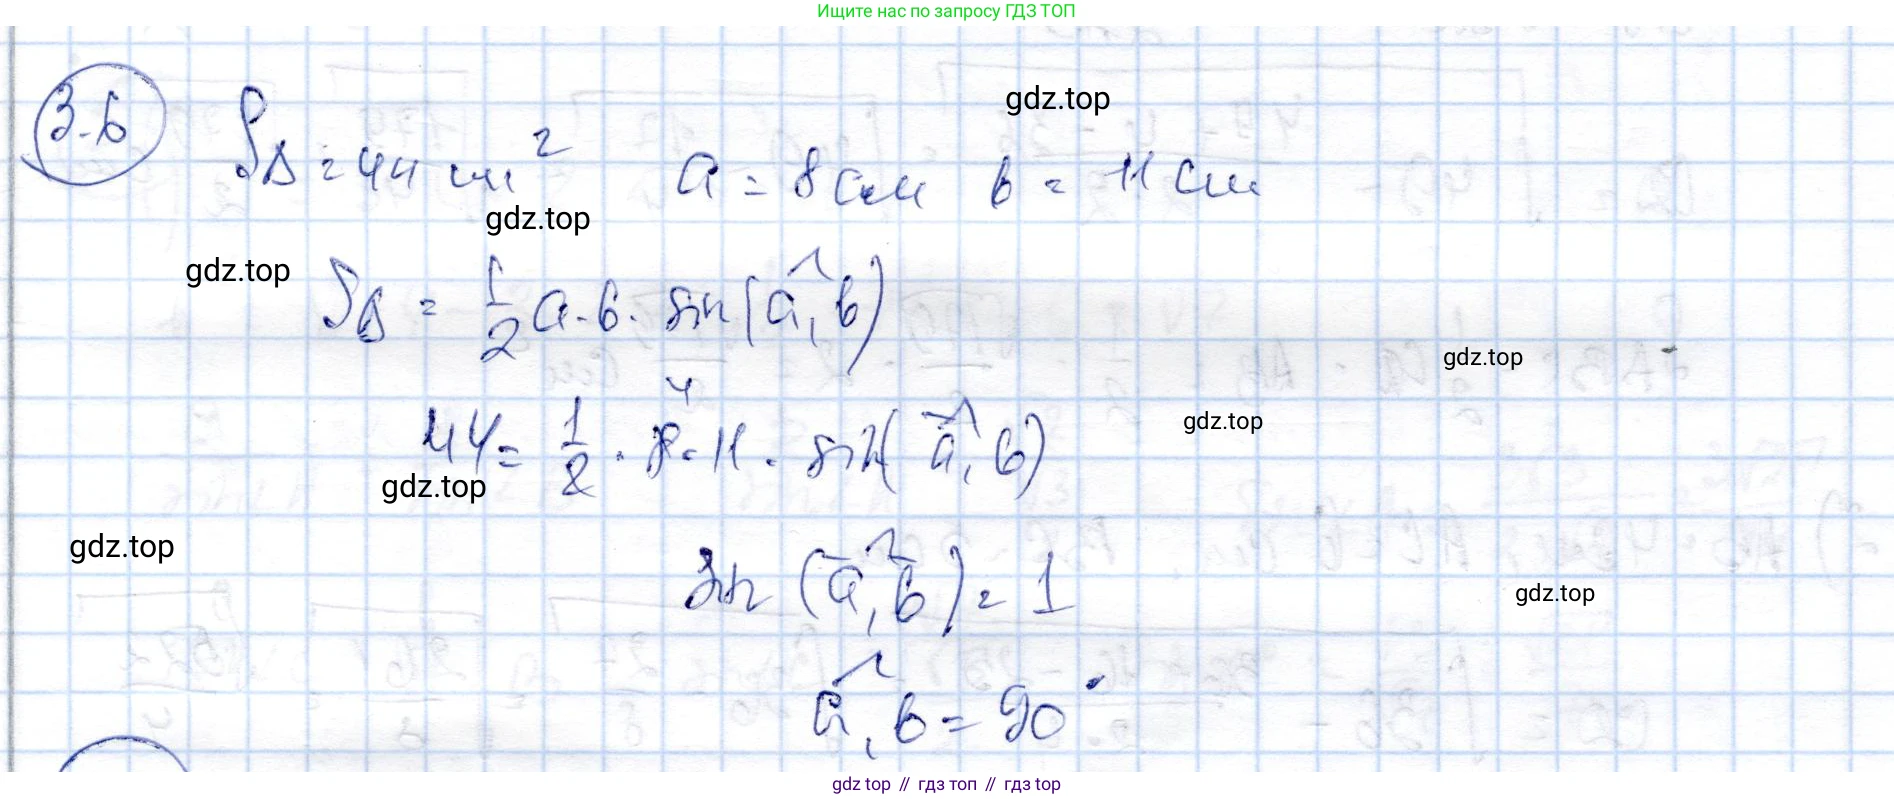 Ищите нас по запросу ГДЗ ТОП
3.6 S△ = 44 см² a = 8 см b = 11 см
gdz.top
gdz.top
gdz.top
S△ = 1/2 a · b · sin(a, b)
gdz.top
4
44 = 1/2 · 8 · 11 · sin(a, b)
gdz.top
gdz.top
gdz.top
sin (a, b) = 1
gdz.top
a, b = 90°
gdz top // гдз топ // гдз top